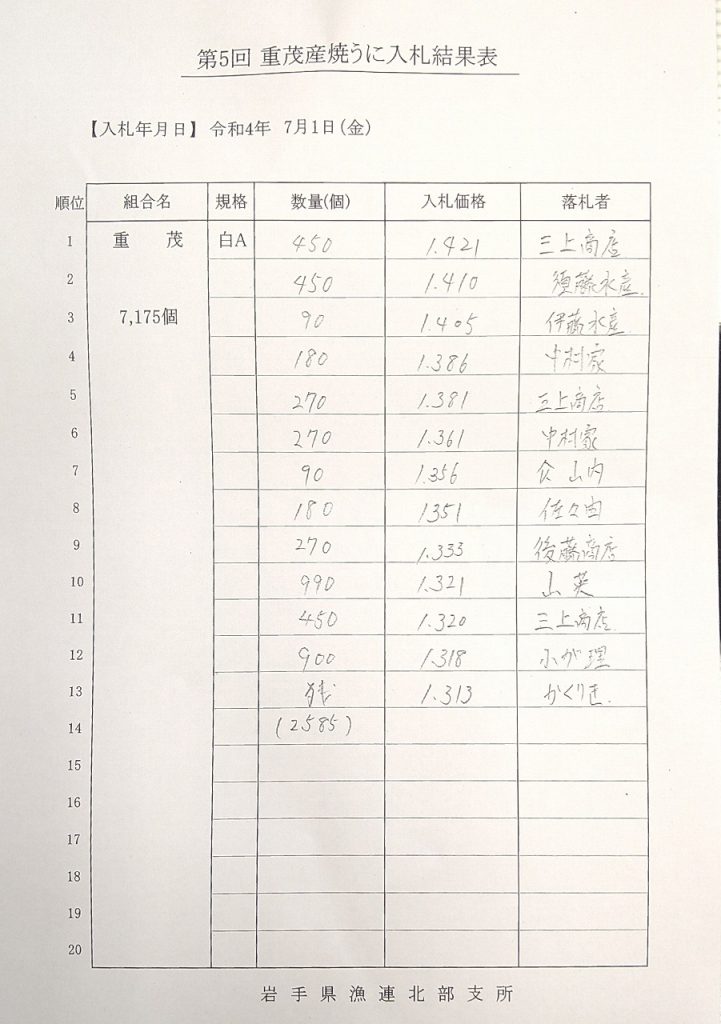 第5回 重茂産焼うに入札結果表
【入札年月日】 令和4年 7月1日(金)
順位 組合名 規格 数量(個) 入札価格 落札者
1 重 茂 白A 450 1.421 三上商店
2 450 1.410 須藤水産
3 7,175個 90 1.405 伊藤水産
4 180 1.386 中村家
5 270 1.381 三上商店
6 270 1.361 中村家
7 90 1.356 山内
8 180 1351 佐々由
9 270 1.333 後藤商店
10 990 1.321 山英
11 450 1.320 三上商店
12 900 1.318 小が理
13 残 1.313 かくりき
14 (2585)
15
16
17
18
19
20
岩手県漁連北部支所